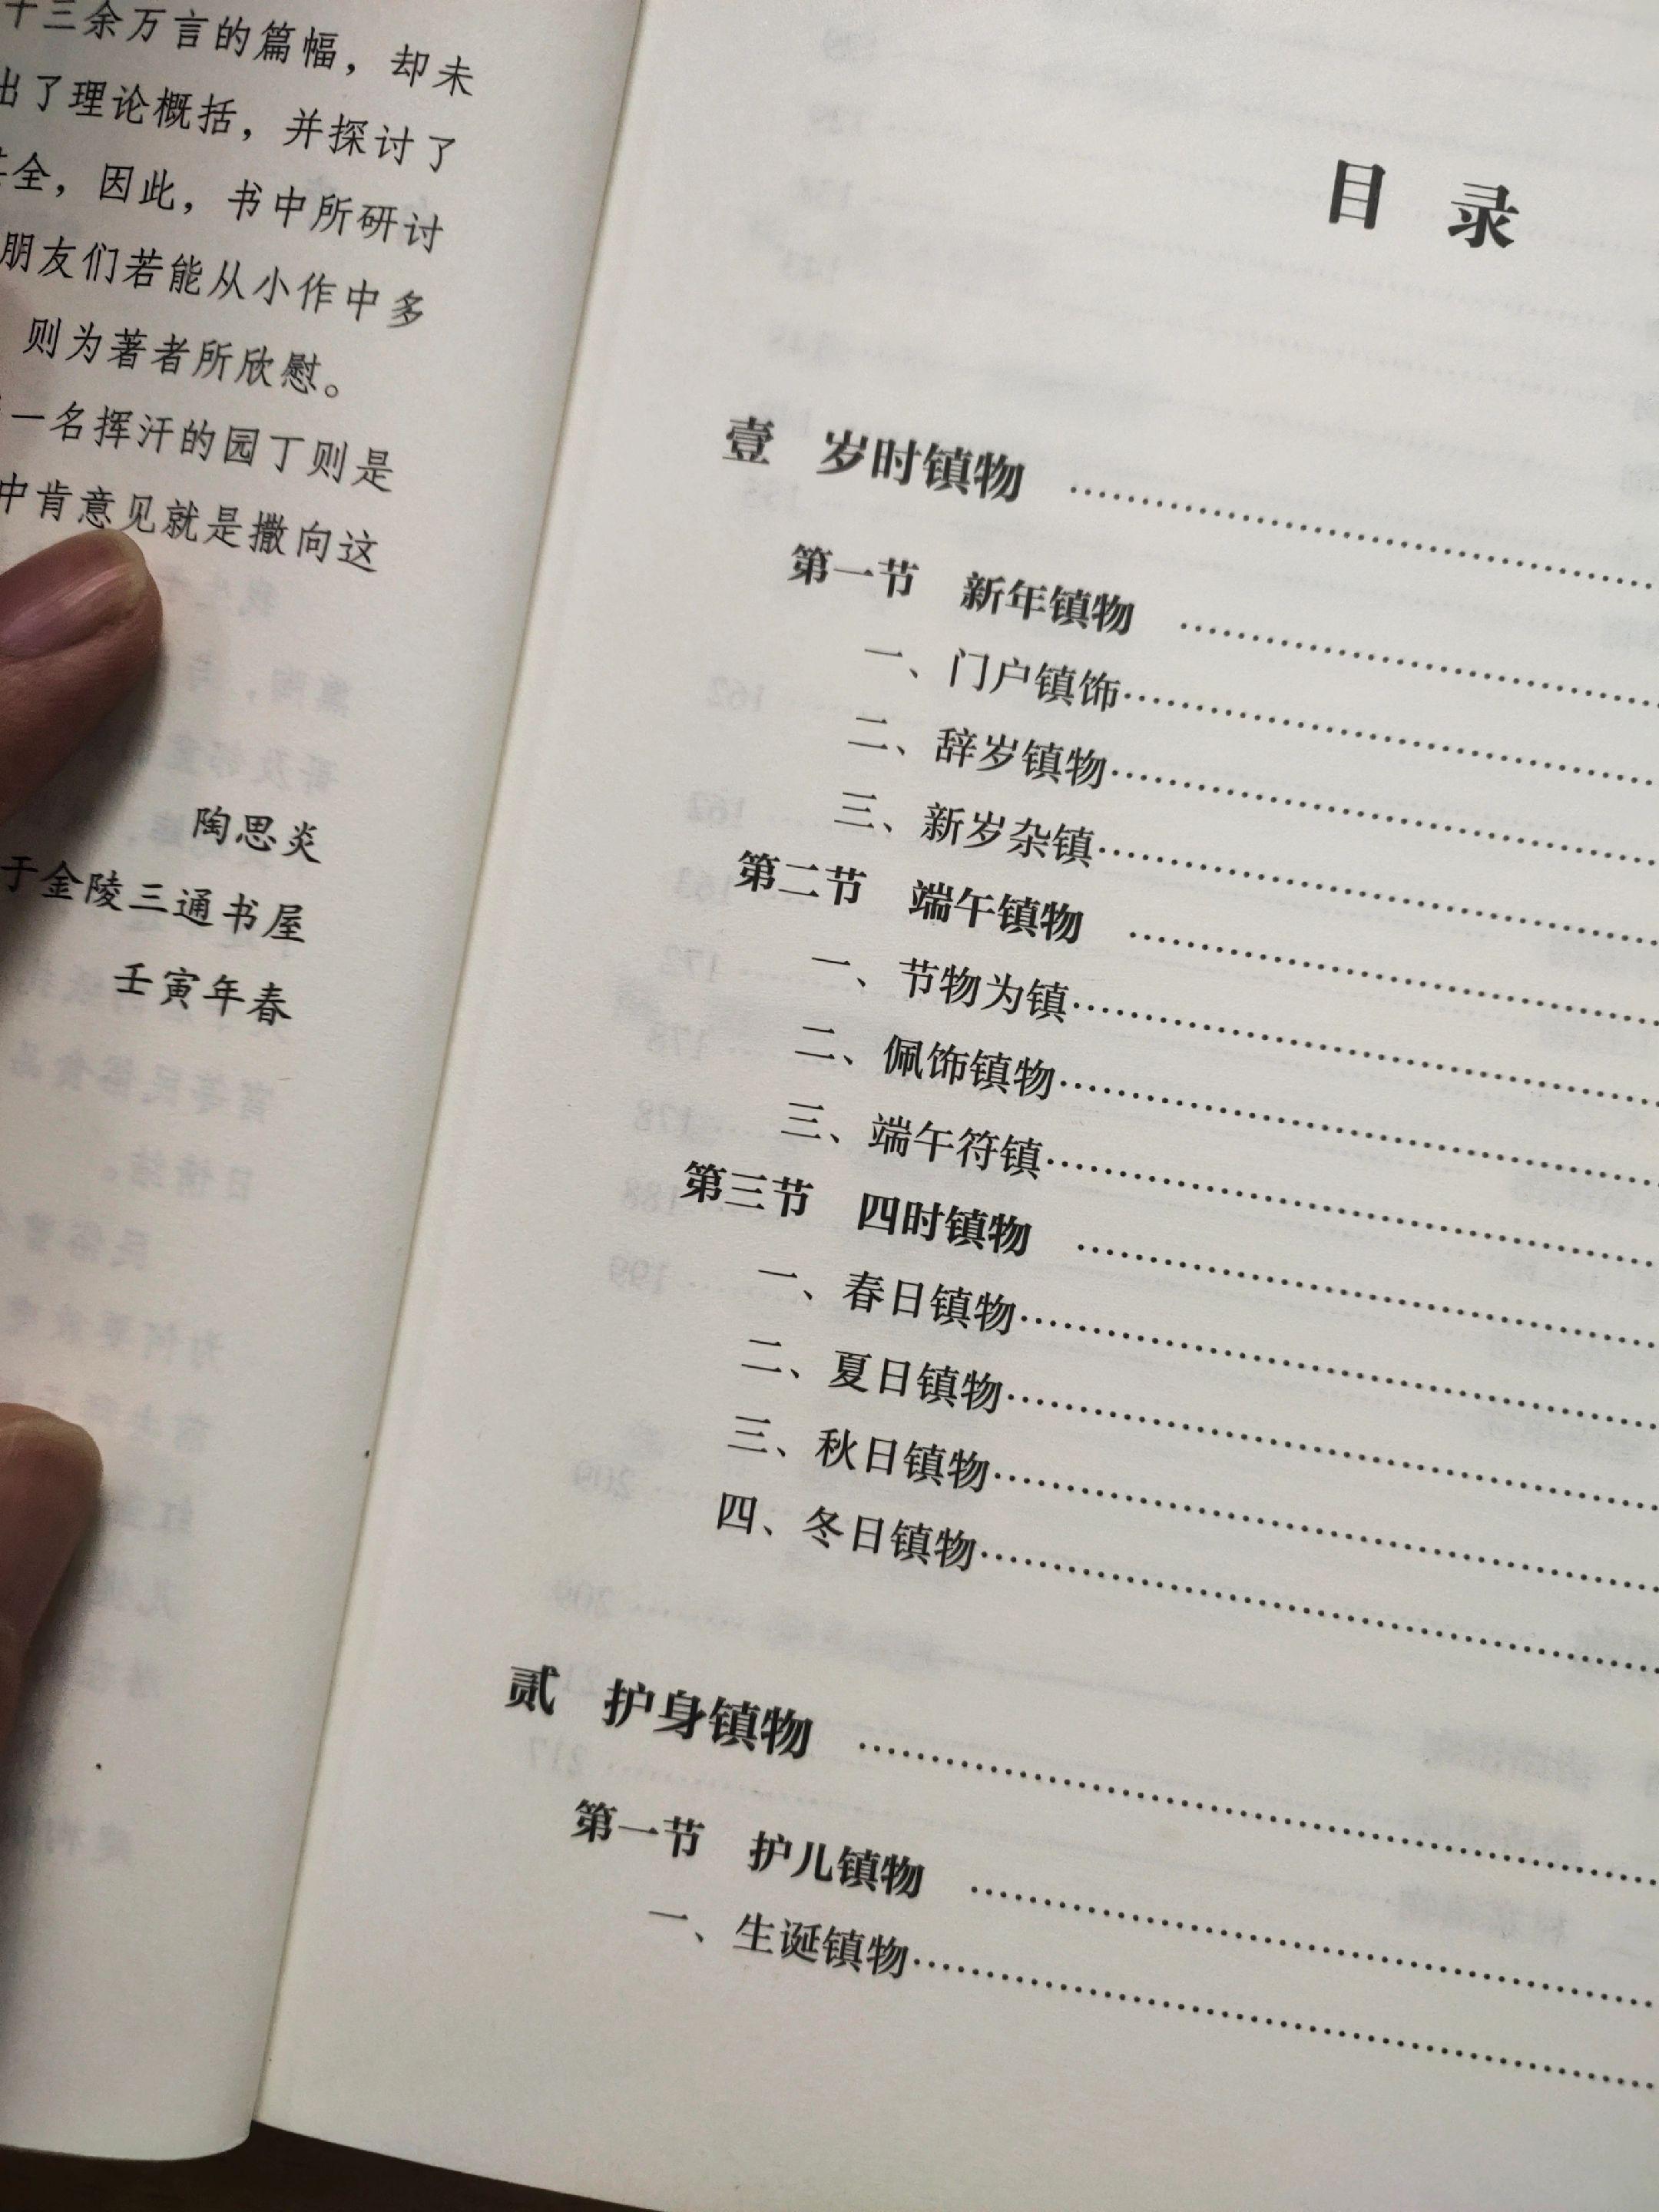 十三余万言的篇幅，却未
出了理论概括，并探讨了
全，因此，书中所研讨
朋友们若能从小作中多
则为著者所欣慰。
一名挥汗的园丁则是
中肯意见就是撒向这
陶思炎
于金陵三通书屋
壬寅年春
目 录
壹 岁时镇物 ……………………
第一节 新年镇物 ……………………
一、门户镇饰……………………
二、辞岁镇物……………………
三、新岁杂镇……………………
第二节 端午镇物 ……………………
一、节物为镇……………………
二、佩饰镇物……………………
三、端午符镇……………………
第三节 四时镇物 ……………………
一、春日镇物……………………
二、夏日镇物……………………
三、秋日镇物……………………
四、冬日镇物……………………
贰 护身镇物 ……………………
第一节 护儿镇物 ……………………
一、生诞镇物……………………